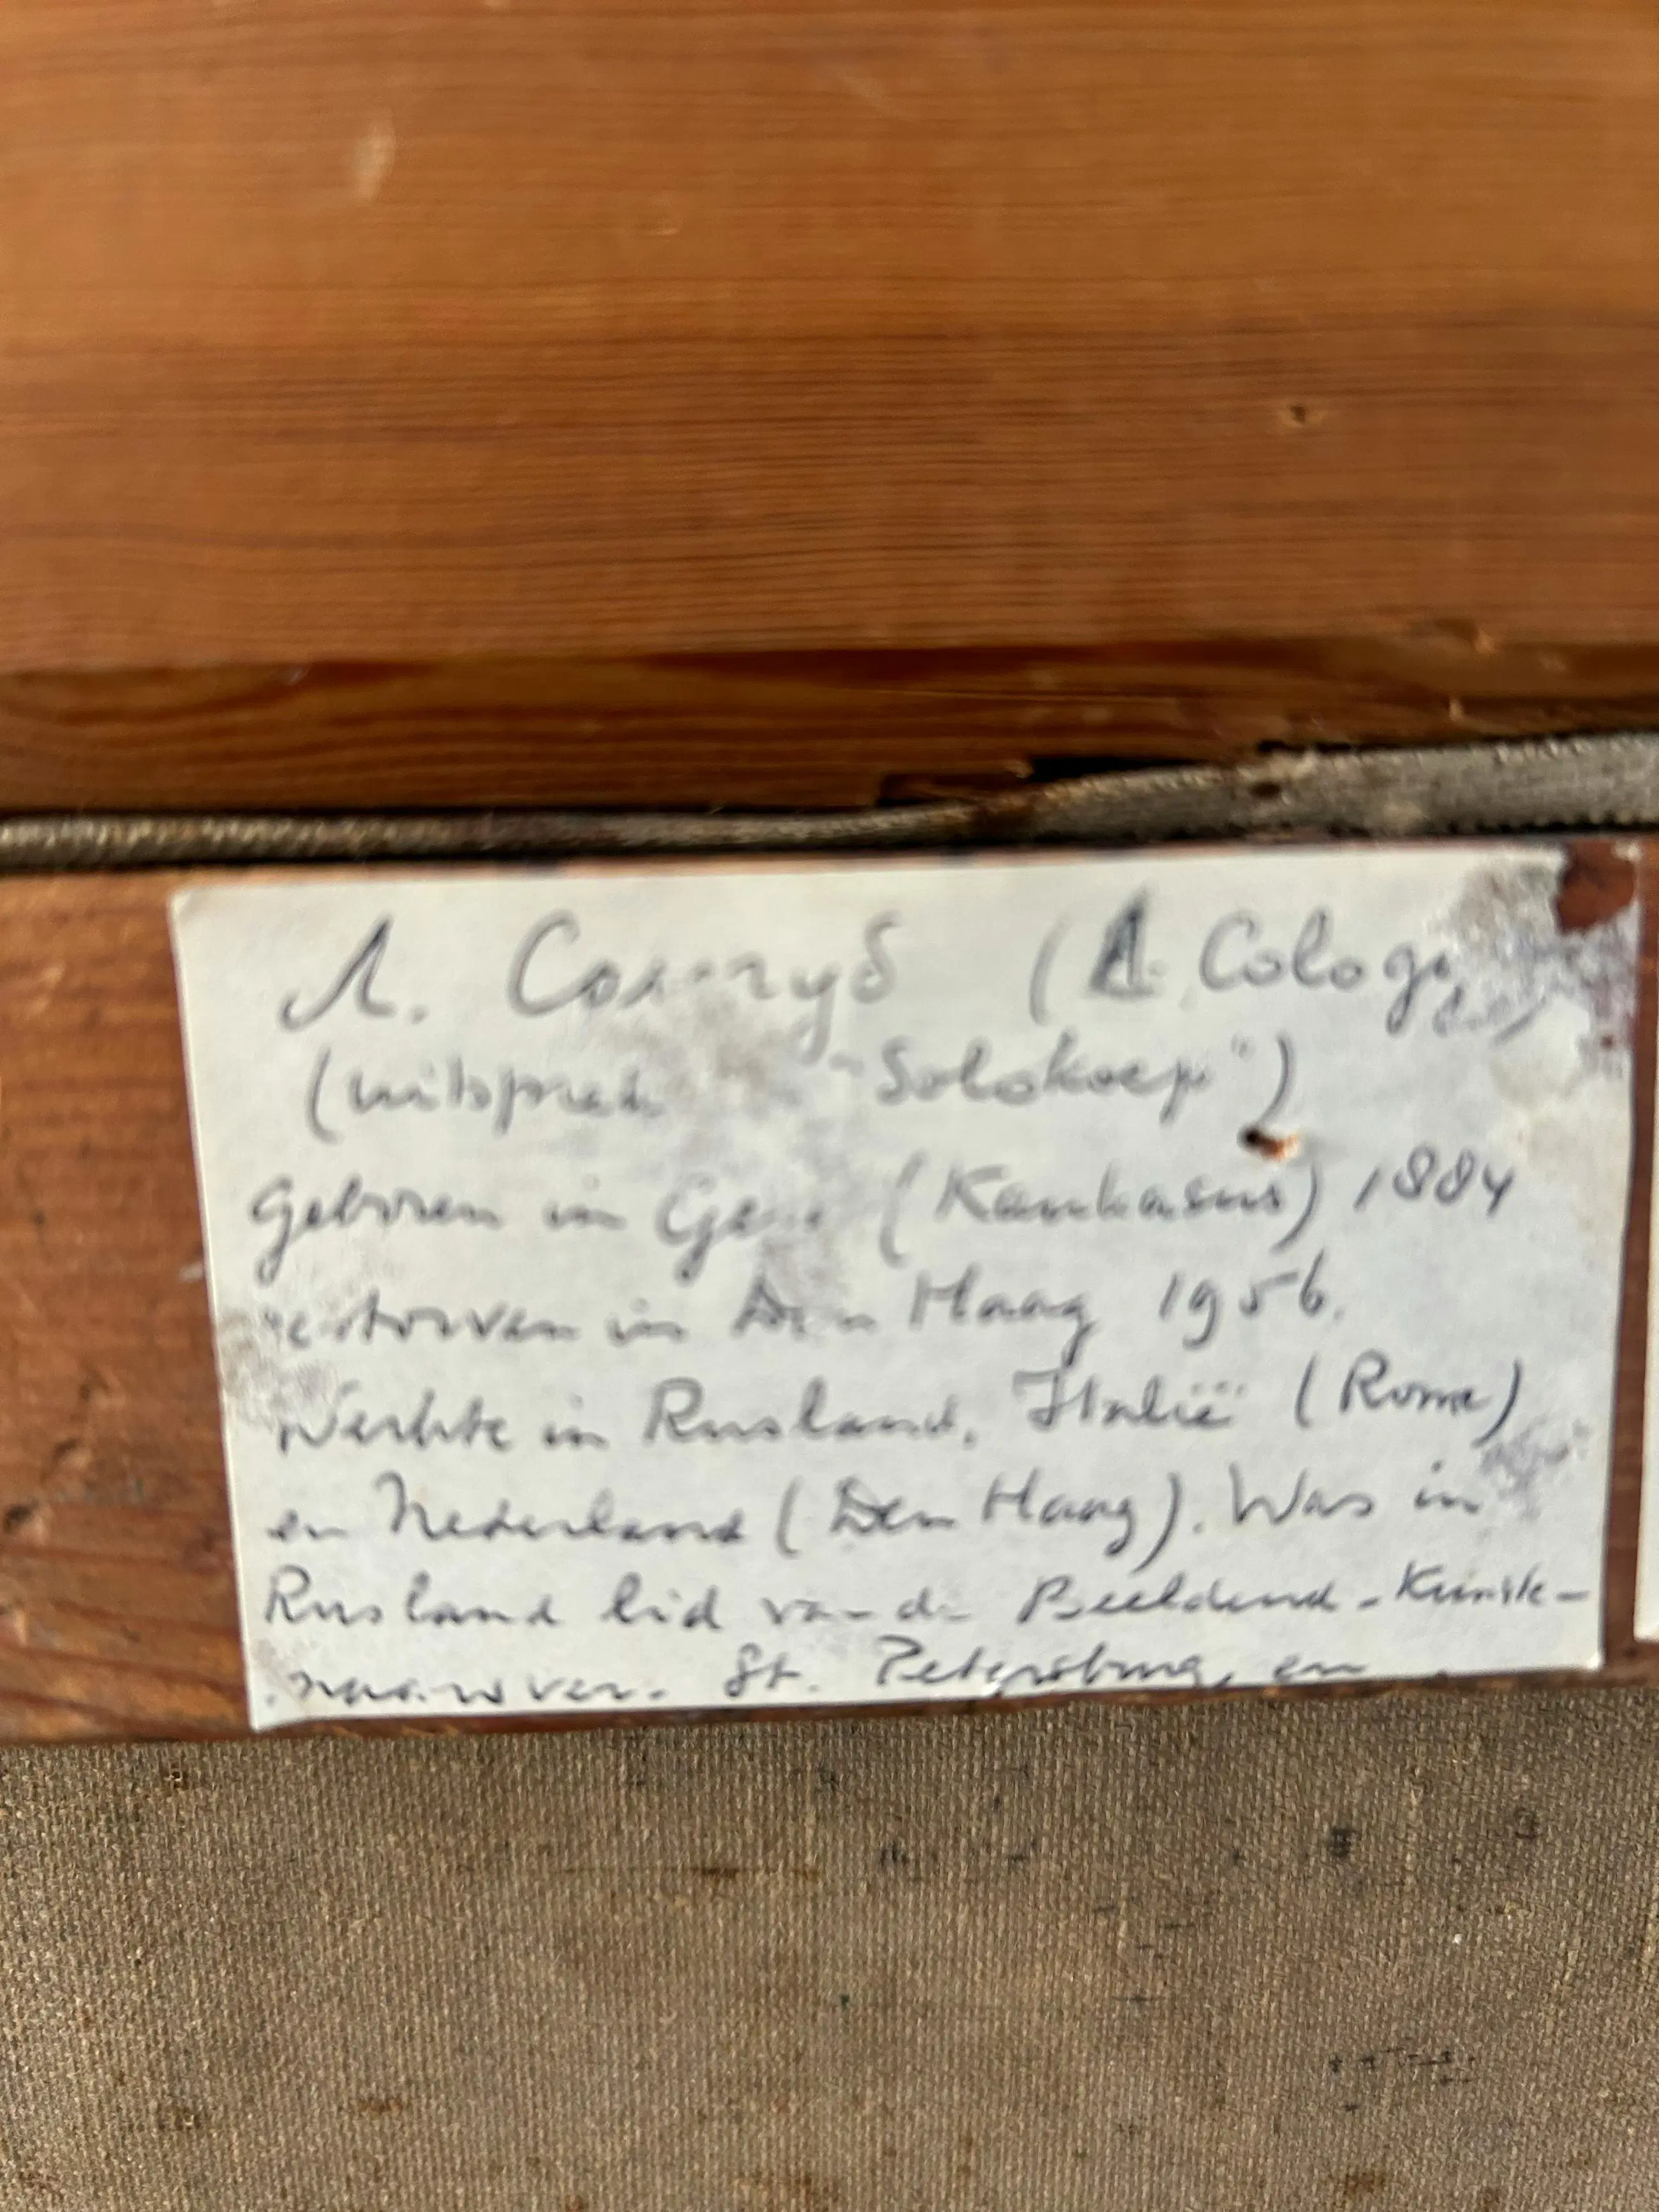 Л. (A. Cologub)
(uitspraak "Solokoep")
Geboren in (Kaukasus) 1884
gestorven in Den Haag 1956.
Werkte in Rusland, Italië (Rome)
en Nederland (Den Haag). Was in
Rusland lid van de Beeldend-Kunste-
St. Petersburg, en